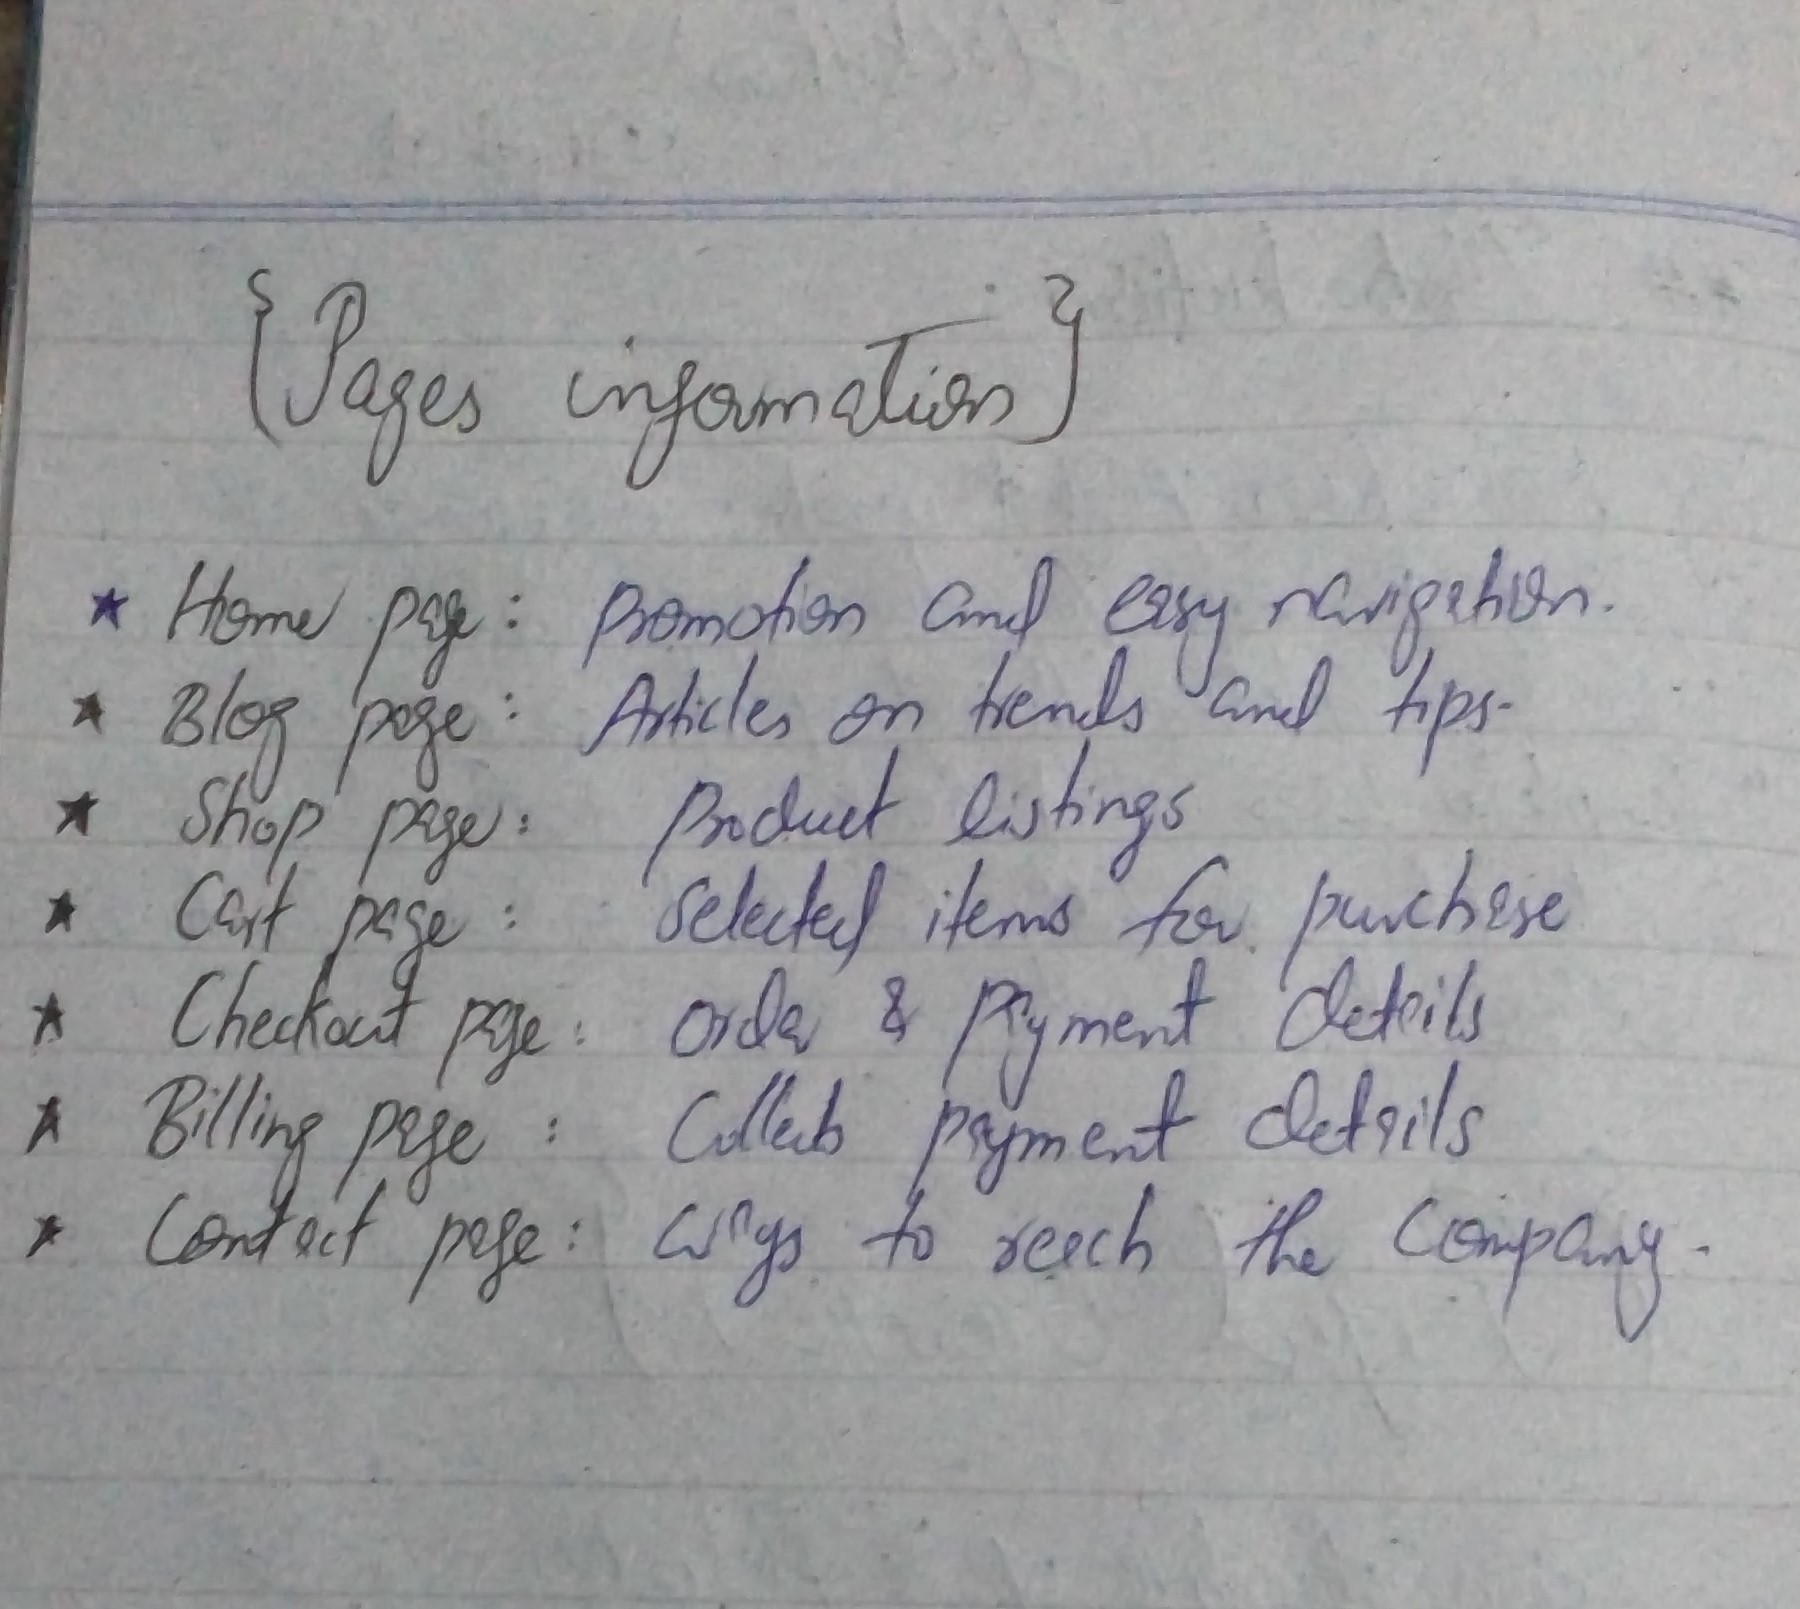 {Pages information}
★ Home page: Promotion and easy navigation.
★ Blog page: Articles on trends and tips.
★ Shop page: Product listings
★ Cart page: Selected items for purchase
★ Checkout page: Order & Payment details
★ Billing page: Collects payment details
★ Contact page: Ways to reach the Company.